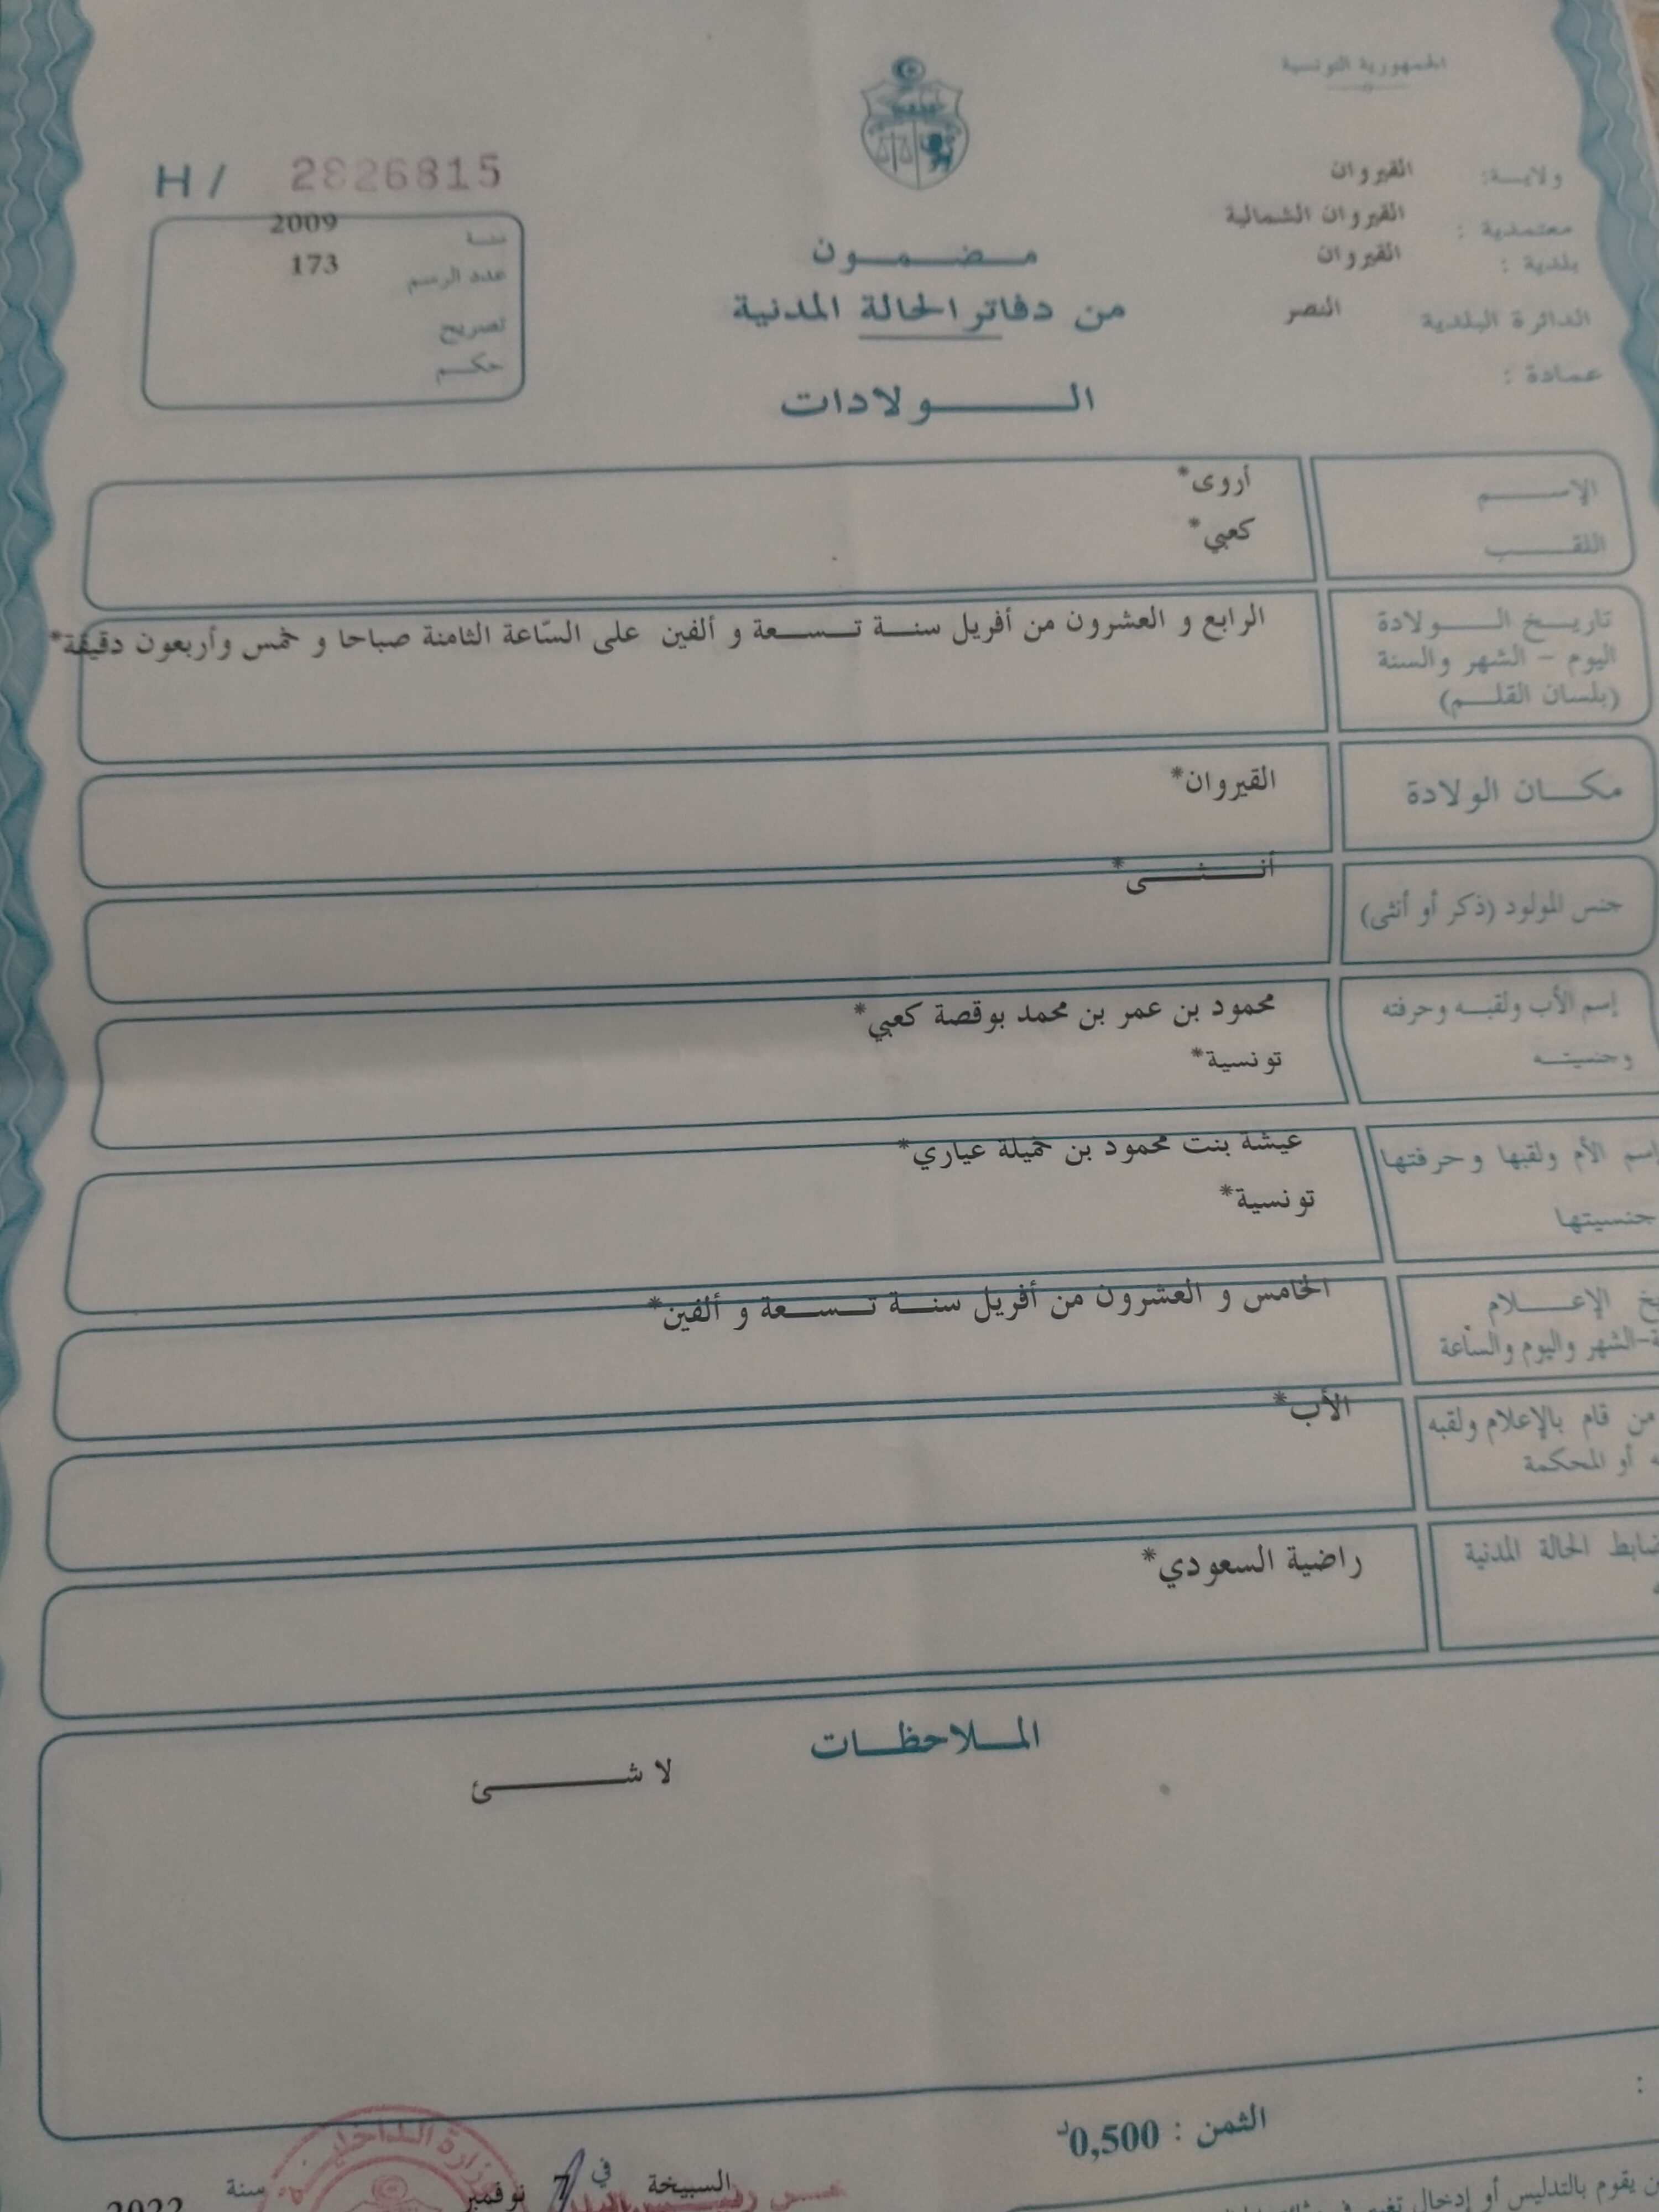 الجمهورية التونسية
ولايــة: القيروان
معتمدية : القيروان الشمالية
بلدية : القيروان
الدائرة البلدية النصر
عمادة :
H / 2826815
سنة 2009
عدد الرسم 173
تصريح
حكــم
مـضـمـون
من دفاتر الحالة المدنية
الـــولادات
الإســـم أروى*
اللقـــب كعبي*
تاريـخ الـــولادة
اليوم - الشهر والسنة
(بلسان القلــم)
الرابع و العشرون من أفريل سنة تسعة و ألفين على السّاعة الثامنة صباحا و خمس وأربعون دقيقة*
مكــان الولادة القيروان*
جنس المولود (ذكر أو أنثى) أنـــثـــى*
إسم الأب ولقبـه وحرفته محمود بن عمر بن محمد بوقصة كعبي*
وجنسيتـه تونسية*
إسم الأم ولقبها وحرفتها عيشة بنت محمود بن خميلة عياري*
جنسيتها تونسية*
الإعــلام
الشهر واليوم والساعة
الخامس و العشرون من أفريل سنة تسعة و ألفين*
من قام بالإعلام ولقبه الأب*
أو المحكمة
الحالة المدنية راضية السعودي*
الملاحظــات
لا شـــئ
الثمن : 0,500د
السبيخة في 7 نوفمبر سنة 2022
وزارة الداخلية
يقوم بالتدليس أو إدخال